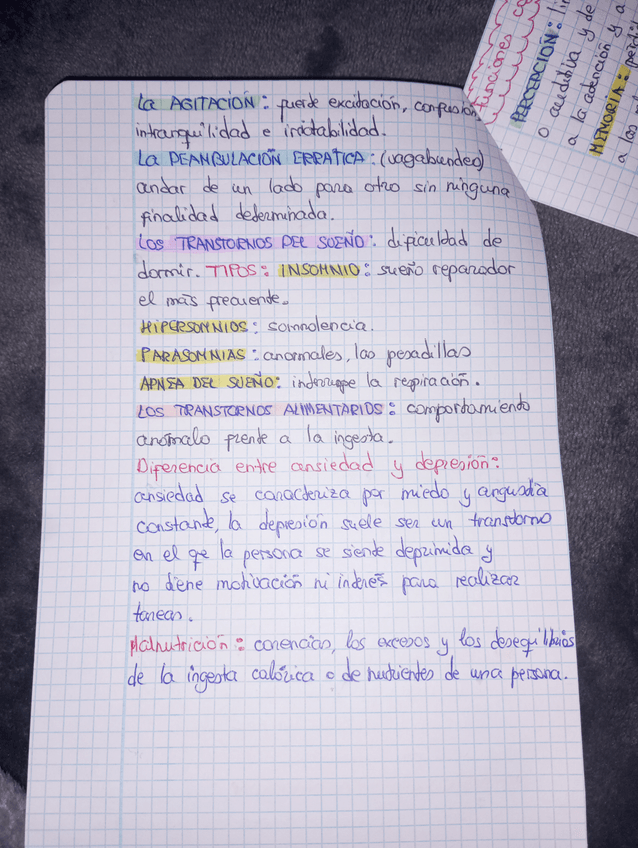 La AGITACIÓN: fuerte excitación, confusión,
intranquilidad e irritabilidad.
La DEANBULACIÓN ERRATICA: (vagabundeo)
andar de un lado para otro sin ninguna
finalidad determinada.
LOS TRANSTORNOS DEL SUEÑO: dificuldad de
dormir. TIPOS: INSOMNIO: sueño reparador
el más frecuente.
HIPERSOMNIOS: somnolencia.
PARASOMNIAS: anormales, las pesadillas
APNEA DEL SUEÑO: interrumpe la respiración.
LOS TRANSTORNOS ALIMENTARIOS: comportamiento
anómalo frente a la ingesta.
Diferencia entre ansiedad y depresión:
ansiedad se caracteriza por miedo y angustia
constante, la depresión suele ser un transtorno
en el qe la persona se siente deprimida y
no tiene motivación ni interés para realizar
tareas.
Malnutrición: carencias, los excesos y los desequilibrios
de la ingesta calórica o de nutrientes de una persona.
funciones
PERCEPCIÓN:
o auditiva y de
a la atención y a
MEMORIA:
a las